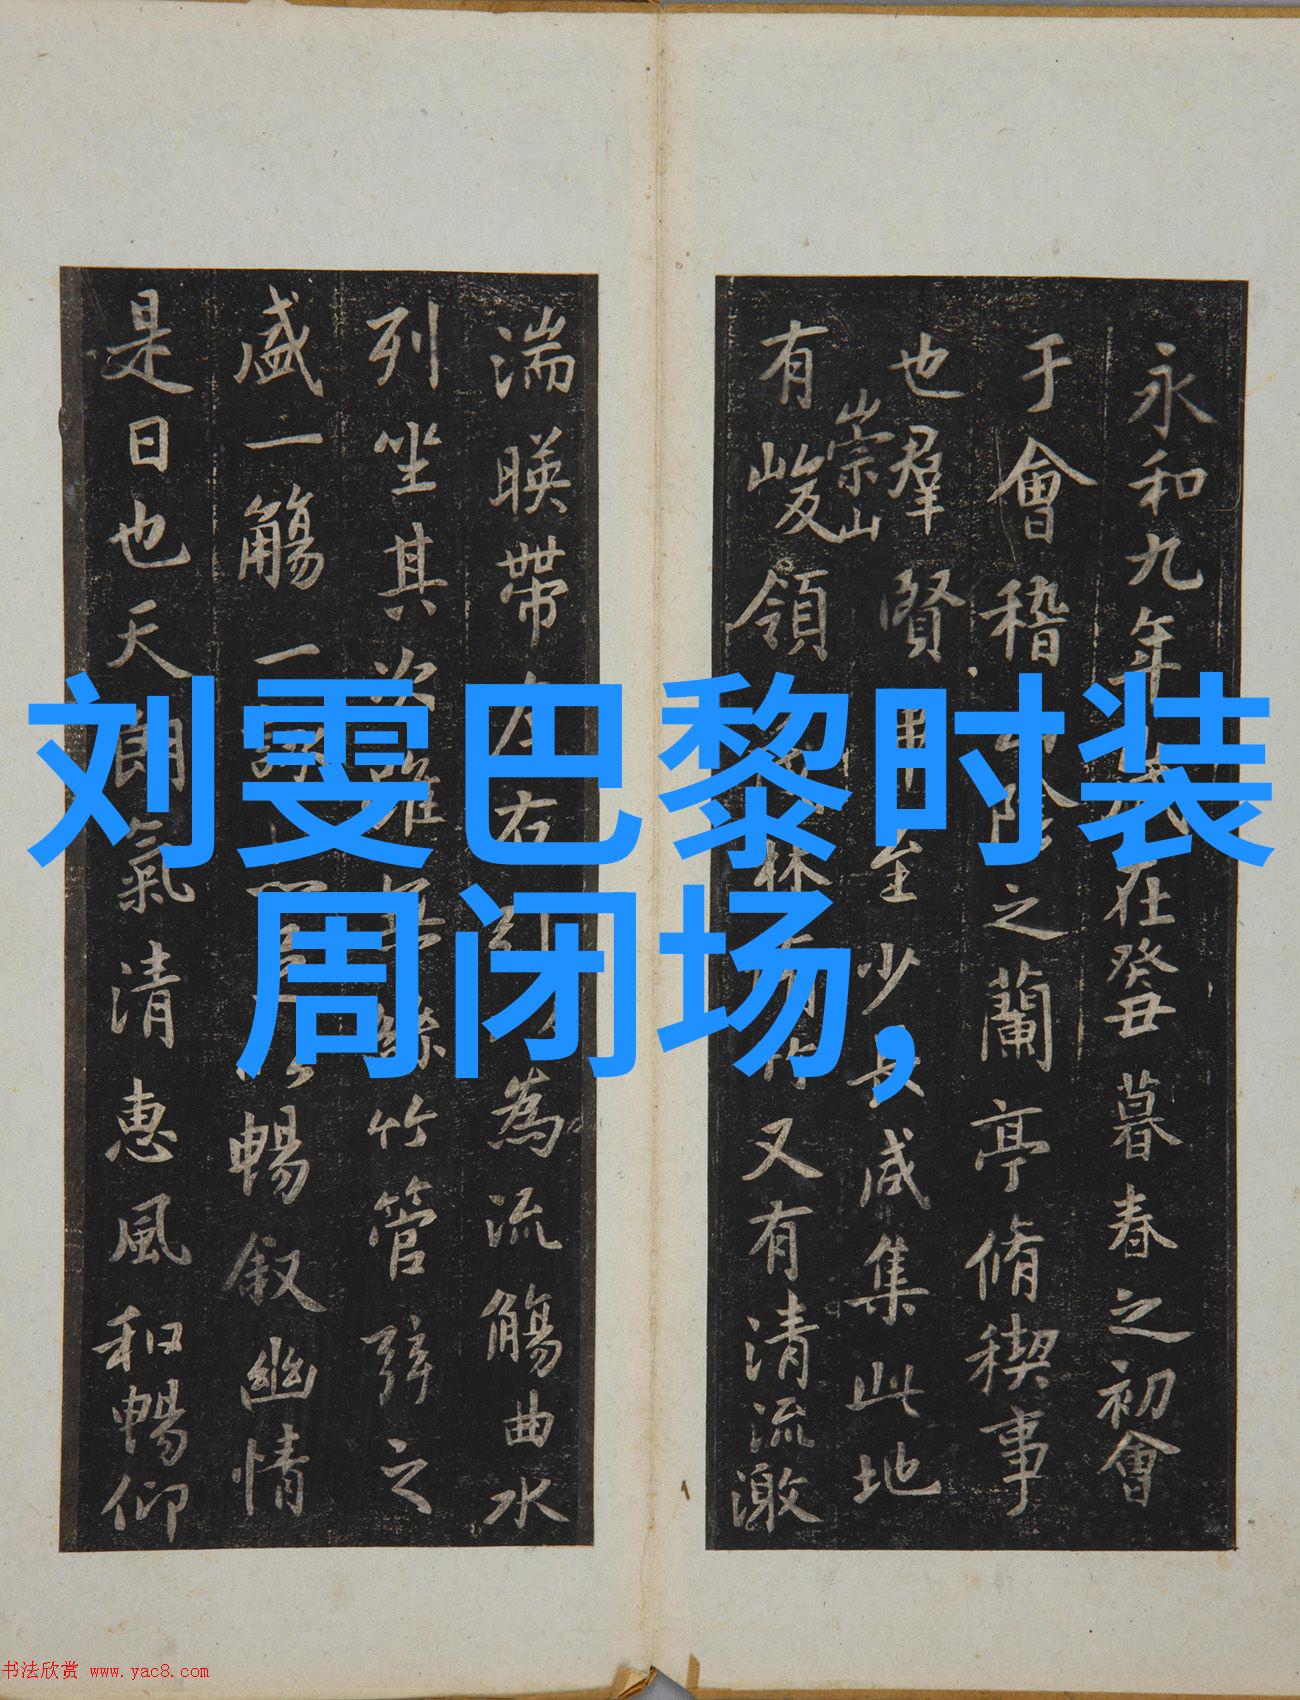 永和九年在癸丑暮春之初會
于會稽之蘭亭脩稧事
也羣賢至少長咸集此地
崇山
有峻領又有清流激
湍暎帶左右為流觴曲水
列坐其次竹管弦之
盛一觴一暢叙幽情
是日也天朗氣清惠風和暢仰
刘雯巴黎时装
周闭场,
书法欣赏 www.yac8.com